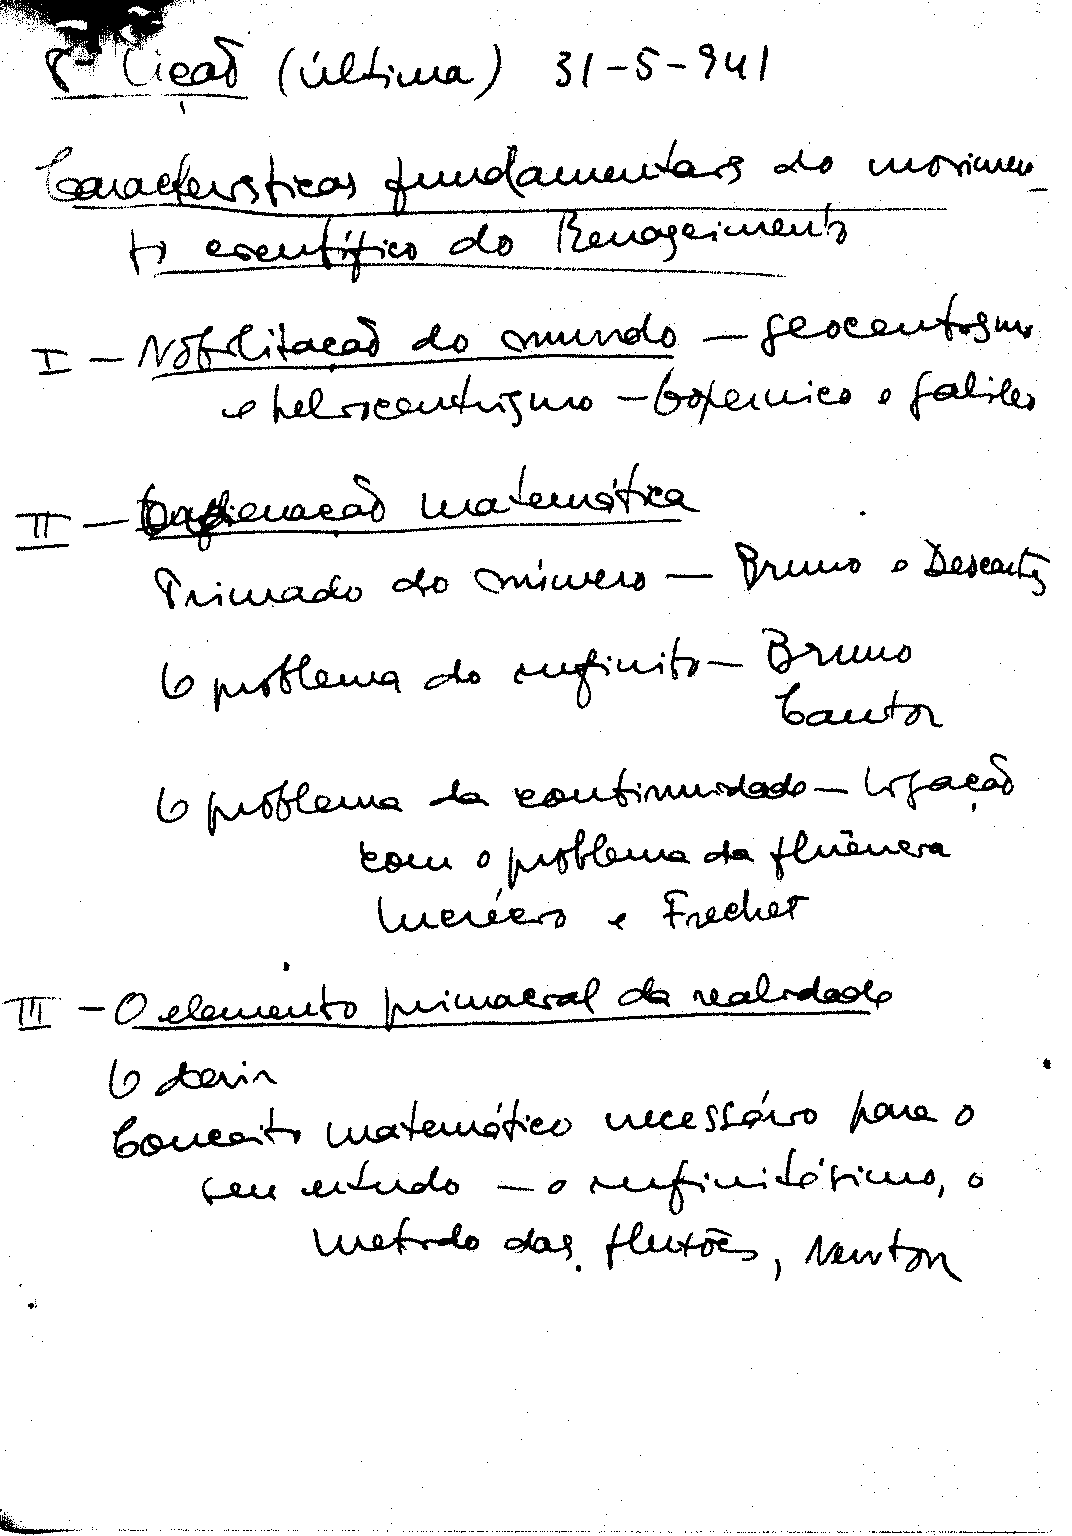 8ª Lição (última) 31-5-941
Características fundamentais do movimen_
to científico do Renascimento
I - Nobilitação do mundo - geocentrismo
e heliocentrismo - Copernico e Galileo
II - Ordenação matemática
Primado do número - Bruno e Descartes
O problema do infinito - Bruno
Cantor
O problema da continuidade - Ligação
com o problema da fluência
Lucrécio e Frechet
III - O elemento primacial da realidade
O devir
Conceito matemático necessário para o
seu estudo - o infinitésimo, o
metodo das fluxões, Newton